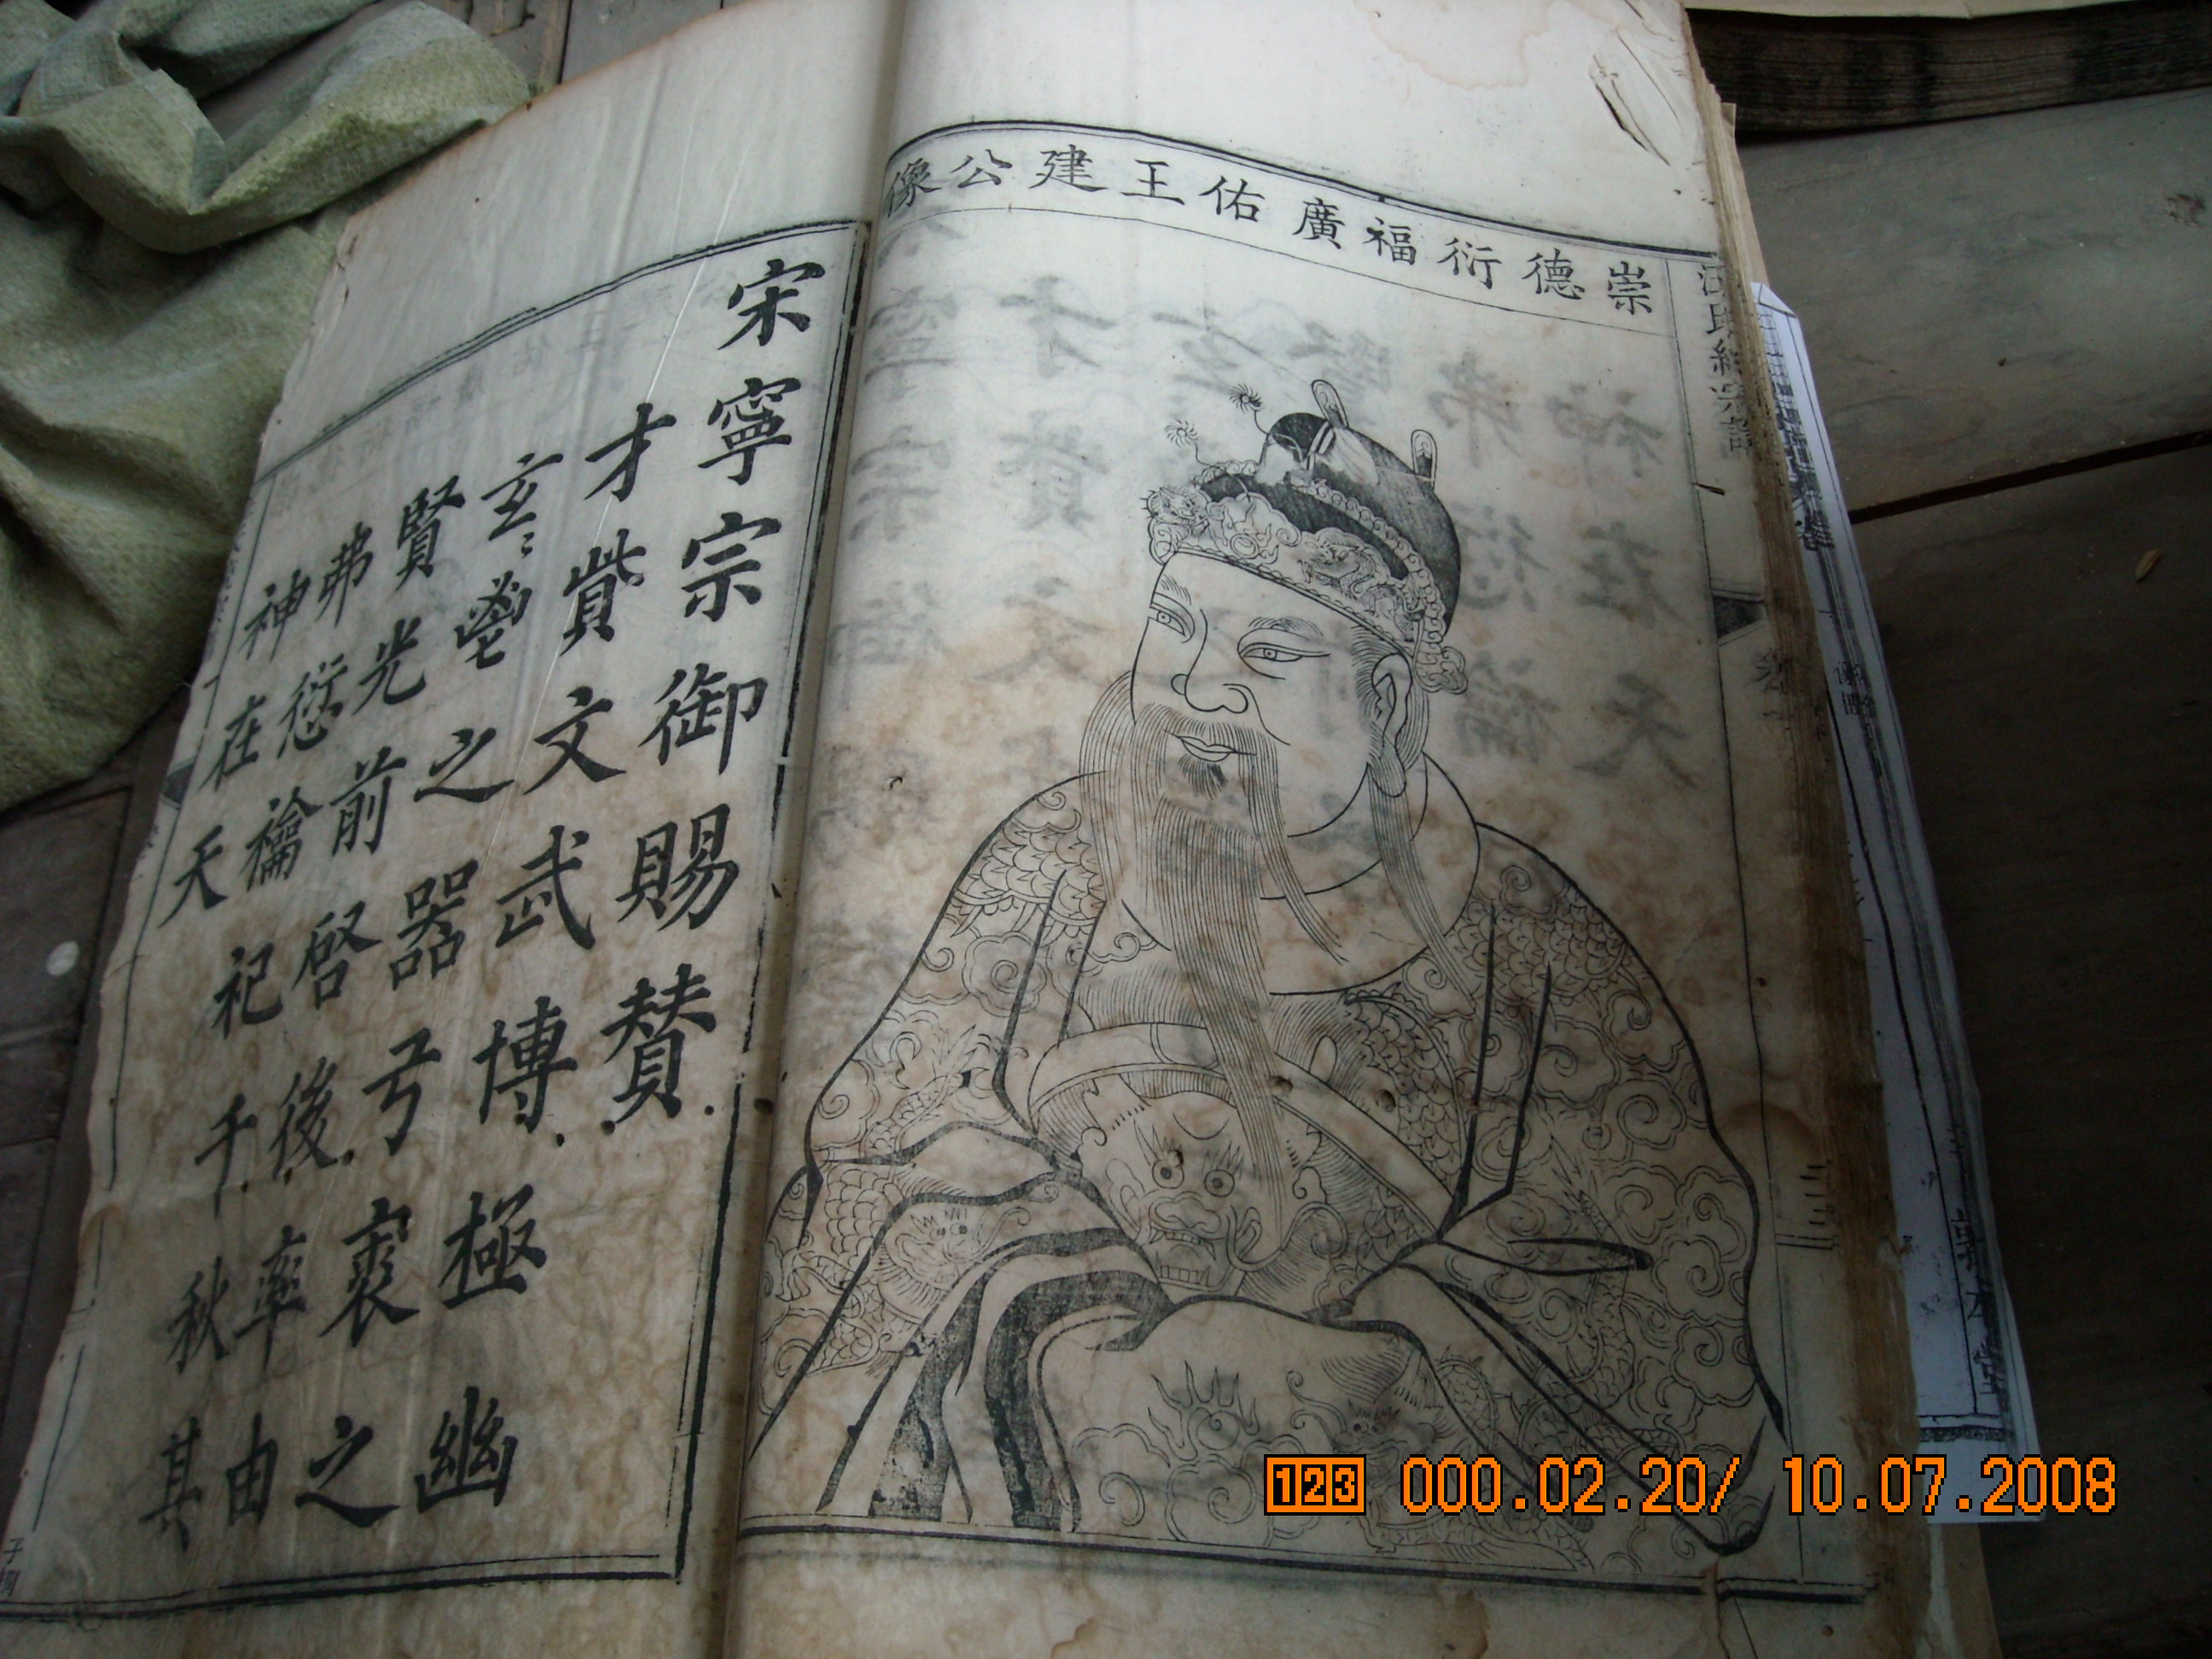 崇德衍福廣佑王建公像
汪氏統宗譜
卷一
宋寧宗御賜賛
才貲文武博極幽
玄鬯之器弓裘之
賢光前啓後率由
弗愆禴祀千秋其
神在天
123 000.02.20/ 10.07.2008